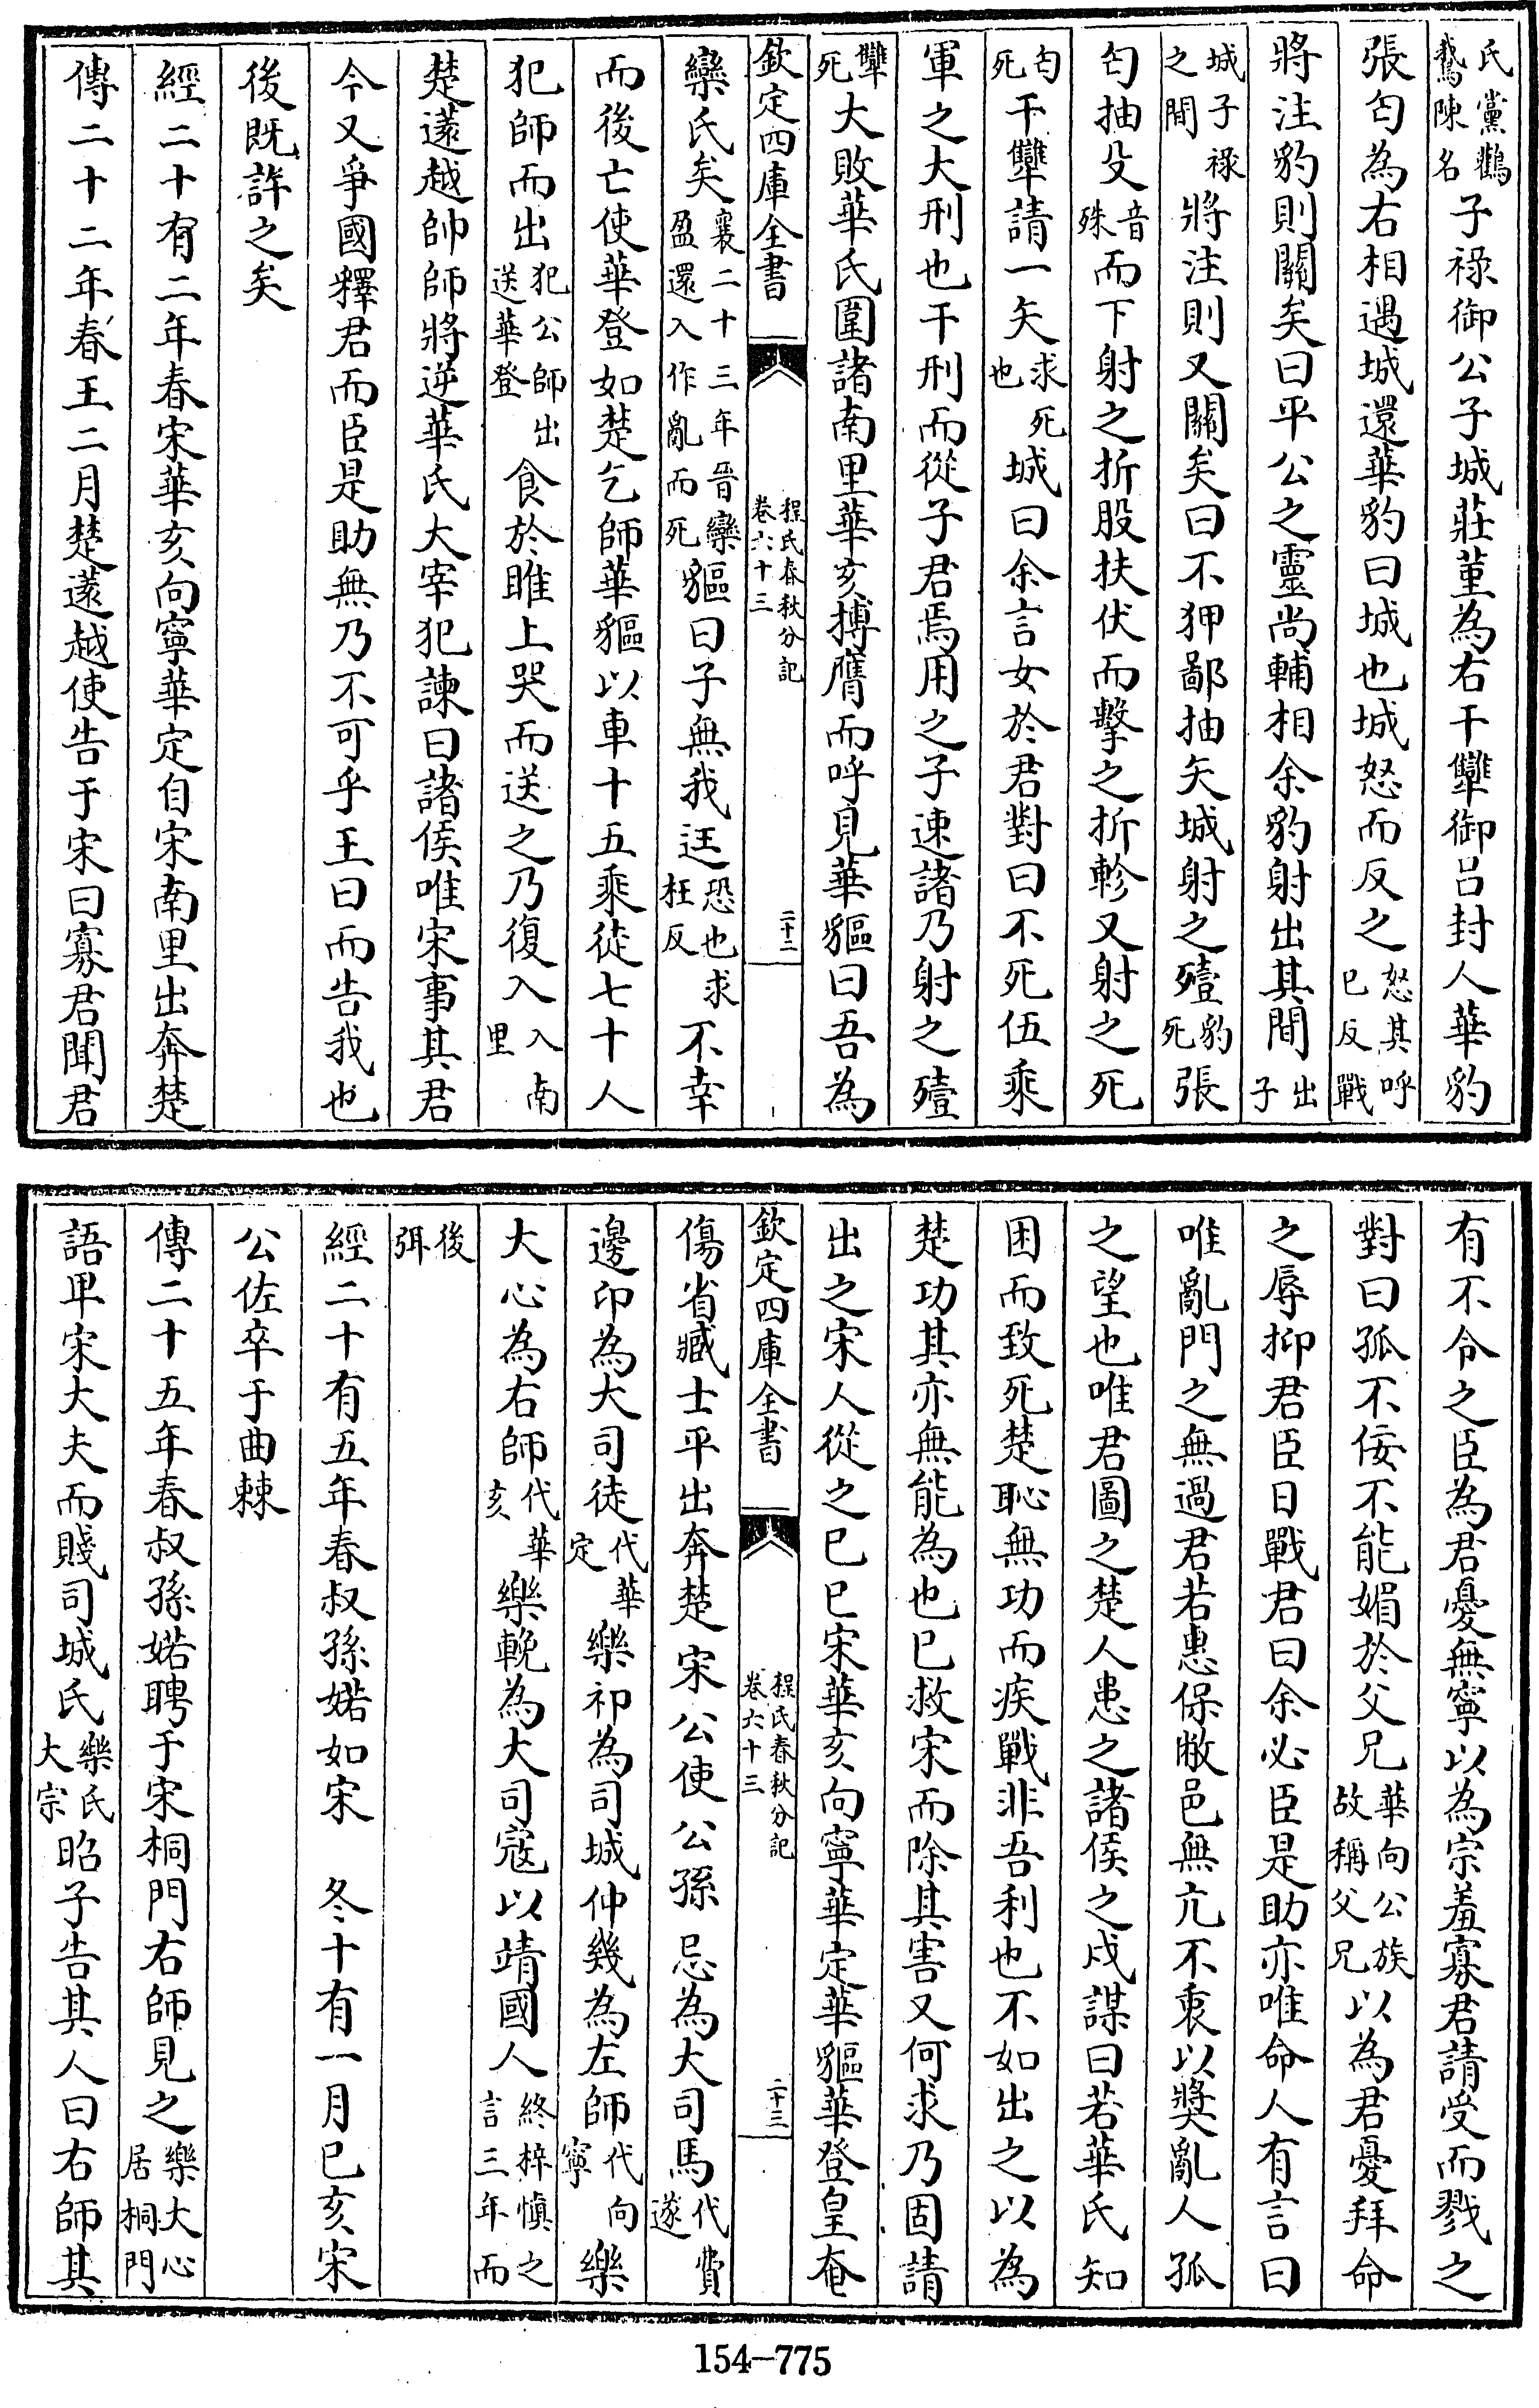 氏黨鸛鵞陳名子祿御公子城莊菫為右干犨御呂封人華豹
張匄為右相遇城還華豹曰城也城怒而反之怒其呼已反戰
將注豹則關矣曰平公之靈尚輔相余豹射出其間出子
城子祿之間將注則又關矣曰不狎鄙抽矢城射之殪豹死張
匄抽殳音殊而下射之折股扶伏而擊之折軫又射之死
匄死干犨請一矢求死也城曰余言女於君對曰不死伍乘
軍之大刑也干刑而從子君焉用之子速諸乃射之殪
犨死大敗華氏圍諸南里華亥搏膺而呼見華貙曰吾為
欽定四庫全書 程氏春秋分記卷六十三 二十二
欒氏矣襄二十三年晉欒盈還入作亂而死貙曰子無我迋恐也求枉反不幸
而後亡使華登如楚乞師華貙以車十五乘徒七十人
犯師而出犯公師出送華登食於睢上哭而送之乃復入入南里
楚薳越帥師將逆華氏大宰犯諫曰諸侯唯宋事其君
今又爭國釋君而臣是助無乃不可乎王曰而告我也
後既許之矣
經二十有二年春宋華亥向寧華定自宋南里出奔楚
傳二十二年春王二月楚薳越使告于宋曰寡君聞君
有不令之臣為君憂無寧以為宗羞寡君請受而戮之
對曰孤不佞不能媚於父兄華向公族故稱父兄以為君憂拜命
之辱抑君臣日戰君曰余必臣是助亦唯命人有言曰
唯亂門之無過君若惠保敝邑無亢不衷以奬亂人孤
之望也唯君圖之楚人患之諸侯之戍謀曰若華氏知
困而致死楚恥無功而疾戰非吾利也不如出之以為
楚功其亦無能為也已救宋而除其害又何求乃固請
出之宋人從之已巳宋華亥向寧華定華貙華登皇奄
欽定四庫全書 程氏春秋分記卷六十三 二十三
傷省臧士平出奔楚宋公使公孫忌為大司馬代費遂
邊卬為大司徒代華定樂祁為司城仲幾為左師代向寧樂
大心為右師代華亥樂輓為大司寇以靖國人終梓慎之言三年而
後弭
經二十有五年春叔孫婼如宋 冬十有一月已亥宋
公佐卒于曲棘
傳二十五年春叔孫婼聘于宋桐門右師見之樂大心居桐門
語卑宋大夫而賤司城氏樂氏大宗昭子告其人曰右師其
154-775